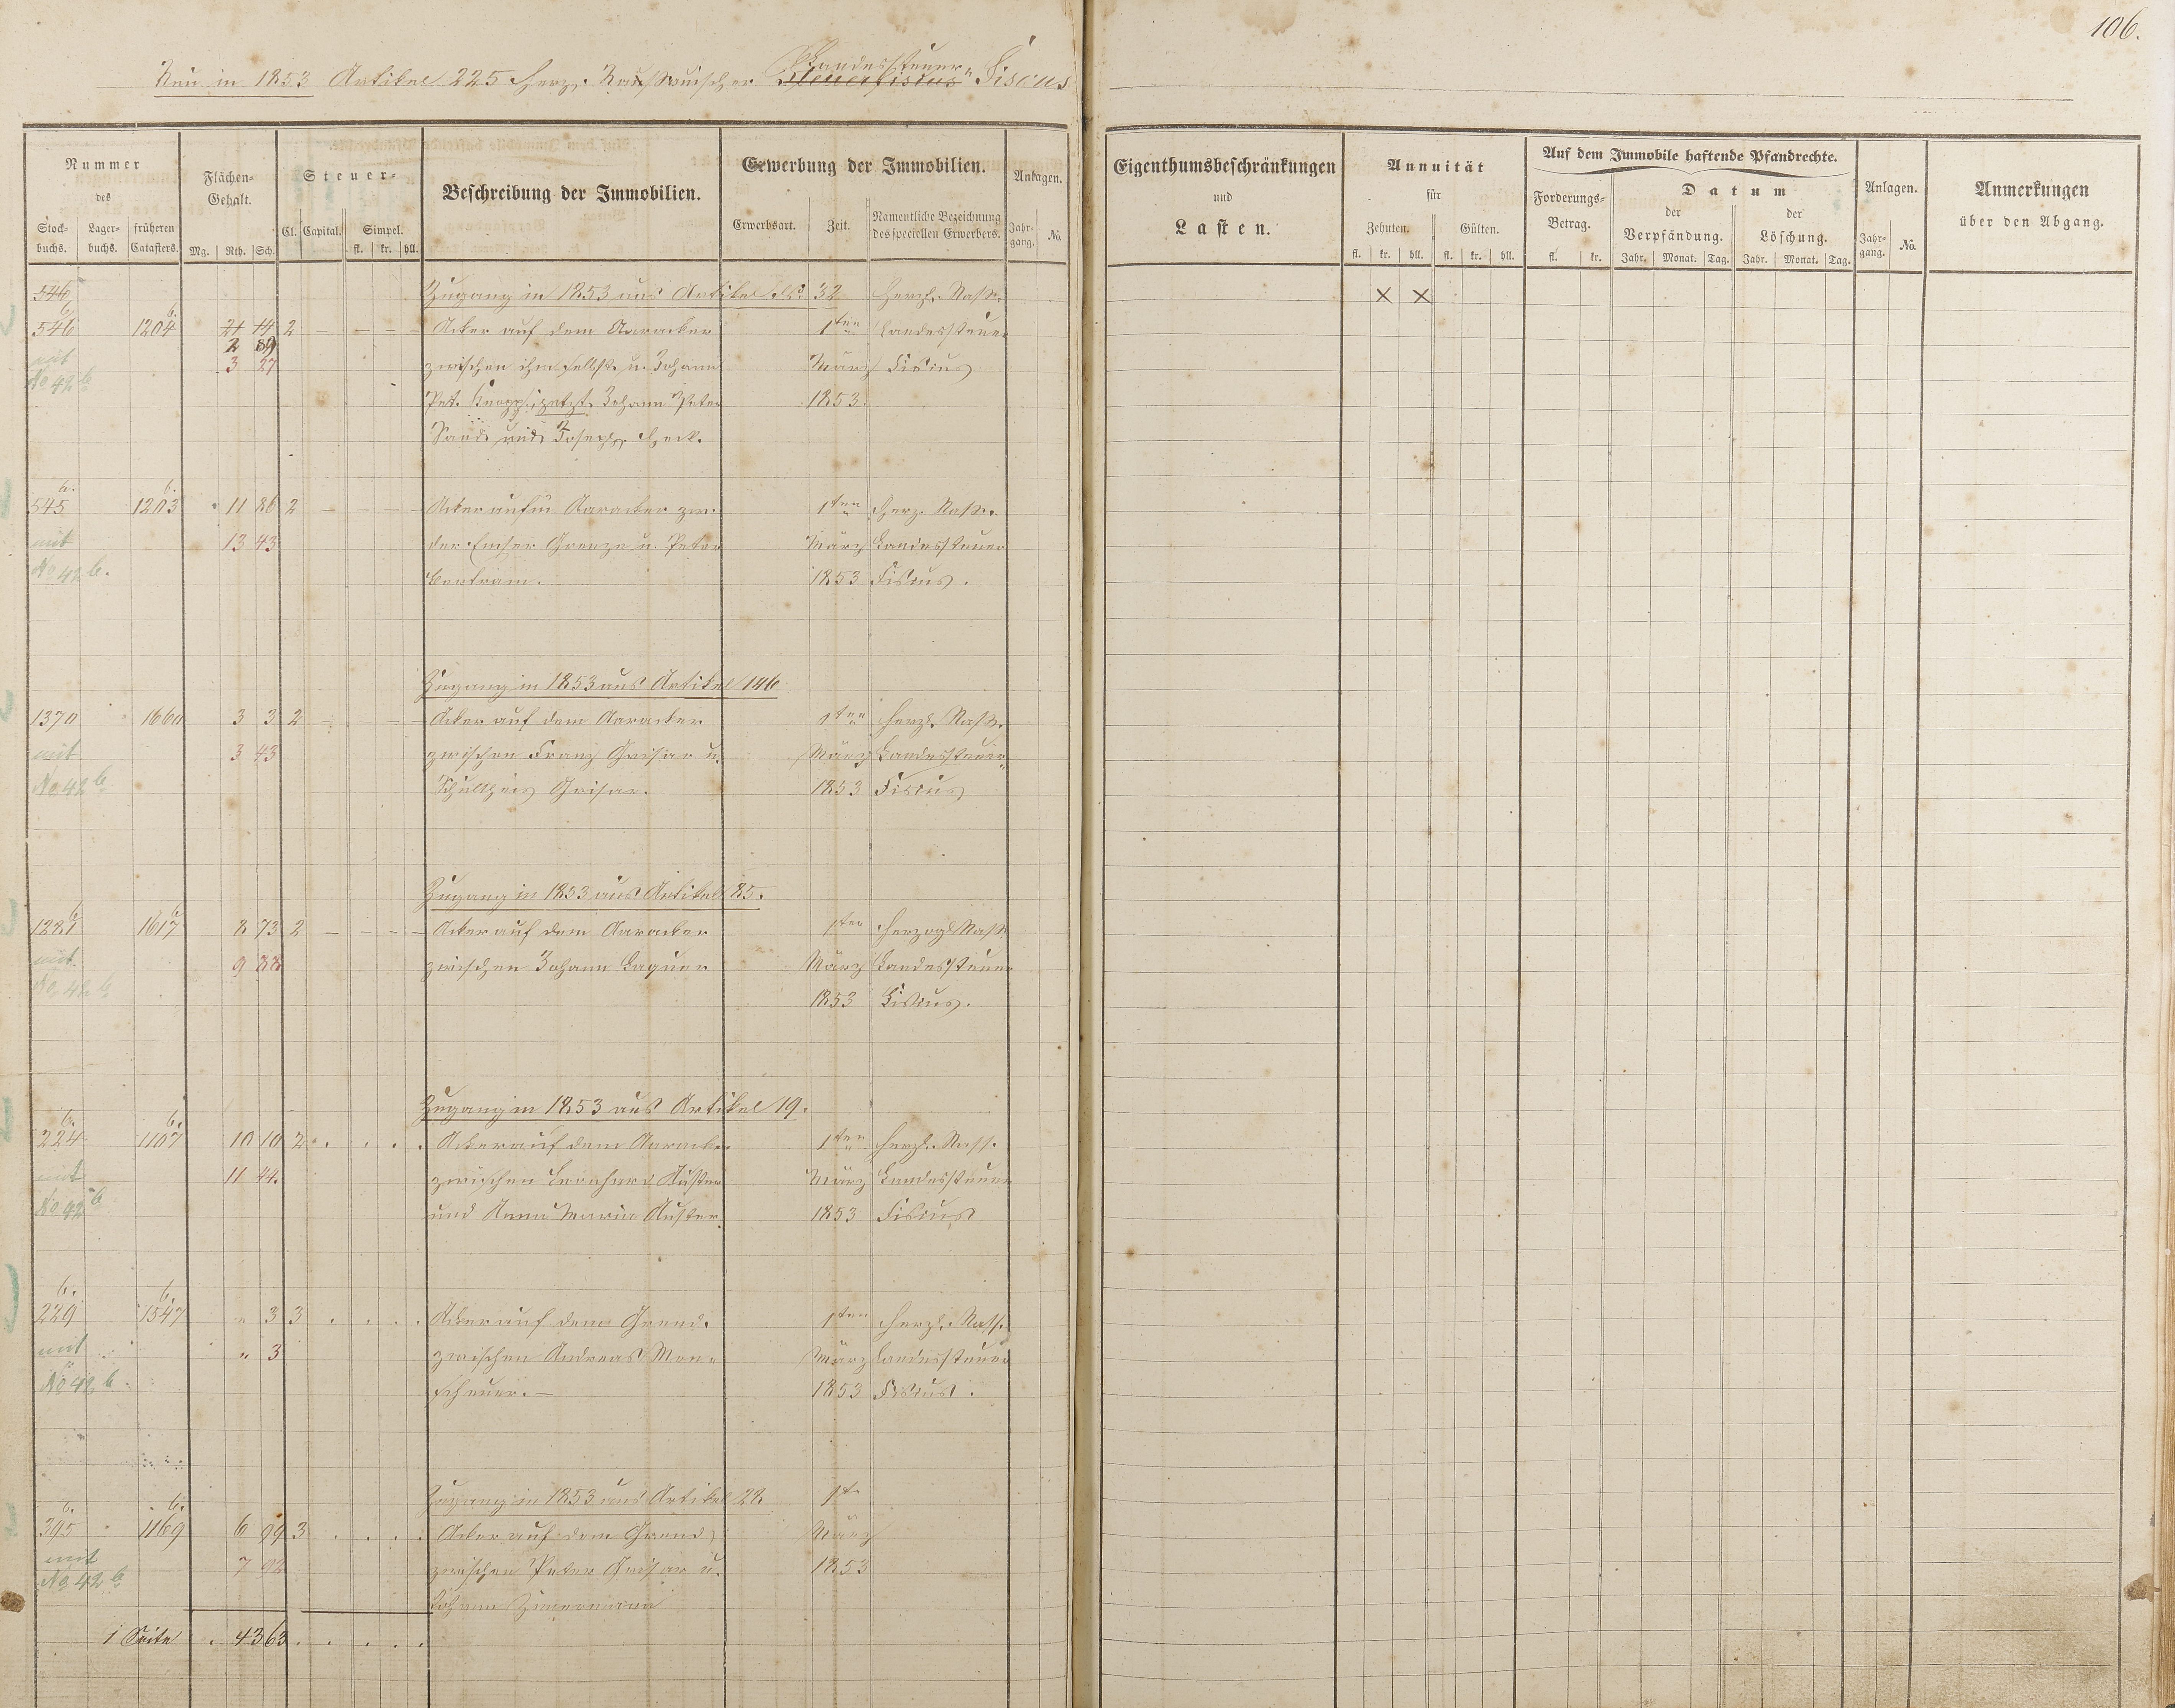 106.
Neu in 1853 Artikel 225 Herz. Nassauischer Steuerfiscus Landessteuer- Fiscus
Nummer
des
Stock-
buchs.
Lager-
buchs.
früheren
Catasters.
Flächen-
Gehalt.
Mg. Rth. Sch.
Steuer-
Cl. Capital. Simpel.
fl. kr. hll.
Beschreibung der Immobilien.
Erwerbung der Immobilien.
Erwerbsart. Zeit. Namentliche Bezeichnung
des speciellen Erwerbers.
Anlagen.
Jahr-
gang. No.
Eigenthumsbeschränkungen
und
Lasten.
Annuität
für
Zehnten. Gülten.
fl. kr. hll. fl. kr. hll.
Auf dem Immobile haftende Pfandrechte.
Forderungs-
Betrag.
fl. kr.
Datum
der
Verpfändung.
der
Löschung.
Jahr. Monat. Tag. Jahr. Monat. Tag.
Anlagen.
Jahr-
gang. No.
Anmerkungen
über den Abgang.
546 Zugang in 1853 aus Artikel 32 Herzl. Nass. × ×
546 b 1204 b. 21 14 2 – – – – Acker auf dem Aaracker 1ten Landessteuer
2 89
mit 3 27 zwischen ihm selbst u. Johann März Fiscus
No 42 b Pet. Knopp, jetzt Johann Peter 1853.
und Joseph Heck.
545 b. 1203 b. 11 86 2 – – – – Acker aufm Aaracker zw. 1ten Herz. Nass.
mit 13 43 der Emser Grenze u. Peter März Landessteuer
No 42 b. Bertram. 1853 Fiscus.
Zugang in 1853 aus Artikel 146
1370 1660 3 3 2 – – – – Acker auf dem Aaracker 1ten Herzl. Nass.
mit 3 43 zwischen Franz Grisar u. März Landessteuer-
No 42 b Schultheis Grisar. 1853 Fiscus
Zugang in 1853 aus Artikel 85.
1281 b 1617 b 8 73 2 – – – – Acker auf dem Aaracker 1ten Herzogl Nass
mit 9 88 zwischen Johann März Landessteuer
No 42 b 1853 Fiscus.
Zugang in 1853 aus Artikel 19.
224 b. 1107 b. 10 10 2 . . . . Acker auf dem Aaracker 1ten Herzl. Nass.
mit 11 44. zwischen Bernhard Kuster März Landessteuer
No 42 b und Anna Maria Kuster. 1853 Fiscus
229 b. 1547 b. " 3 3 . . . . Acker auf dem Grend. 1ten Herzl. Nass.
mit " 3 zwischen Andreas Mon- März Landessteuer
No 42 b. scheuer. – 1853 Fiscus.
Zugang in 1853 aus Artikel 28 1t.
395 b. 1169 b. 6 99 3 . . . . Acker auf dem Grend März
mit 7 92 zwischen Peter Grisar u. 1853
No 42 b Johann Zimermann
1 Seite . 43 63 . . . . .